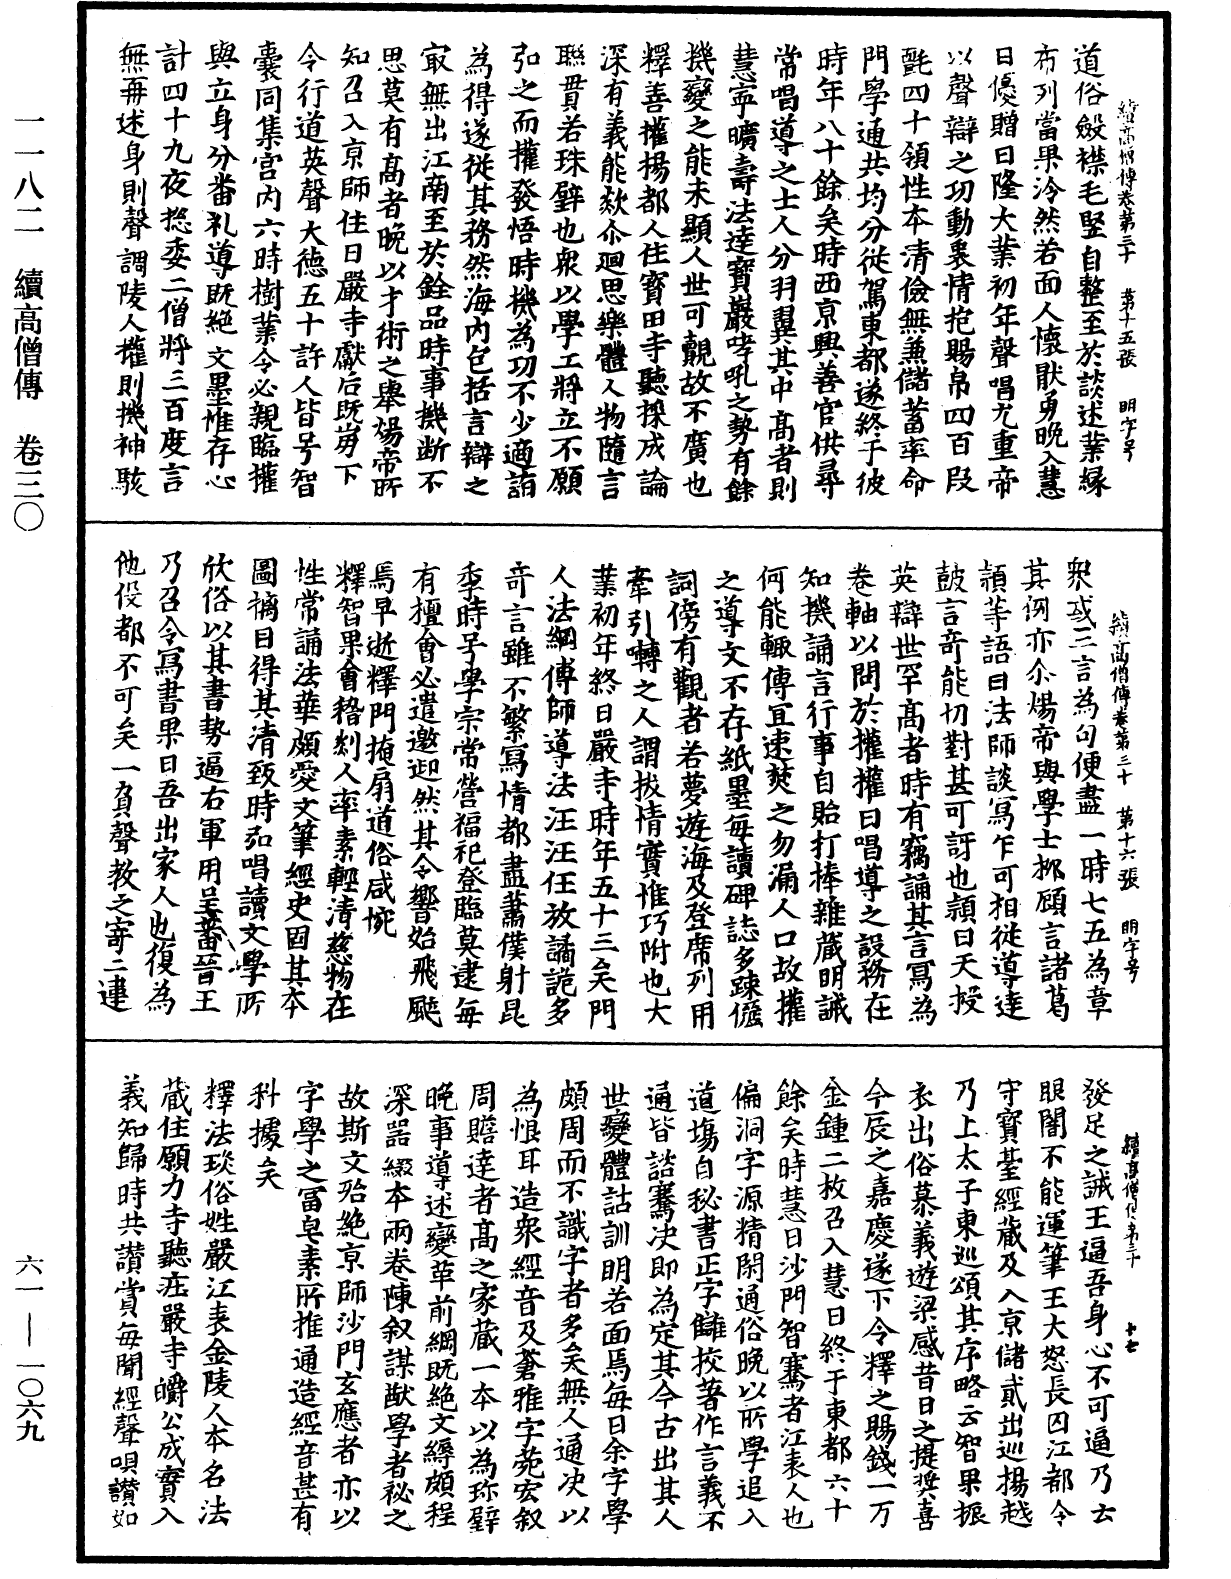 一一八二　續高僧傳　卷三〇
六一—一〇六九
續高僧傳卷第三十　第十五張　明字号
道俗斂襟毛竪自整至於談述業緣
布列當果泠然若面人懷猒勇晚入慧
日優贈日隆大業初年聲唱尤重帝
以聲辯之功動衷情抱賜帛四百段
氈四十領性本清儉無兼儲蓄率命
門學通共均分從駕東都遂終于彼
時年八十餘矣時西京興善官供尋
常唱導之士人分羽翼其中高者則
慧寧曠壽法達寶巖哮吼之勢有餘
機變之能未顯人世可覿故不廣也
釋善權揚都人住寶田寺聽採成論
深有義能欻尒迴思樂體人物隨言
聮貫若珠璧也衆以學工將立不願
弘之而權發悟時機為功不少適詣
為得遂從其務然海內包括言辯之
㝡無出江南至於銓品時事機斷不
思莫有高者晚以才術之舉煬帝所
知召入京師住日嚴寺獻后旣崩下
令行道英聲大德五十許人皆号智
囊同集宮內六時樹業令必親臨權
與立身分番礼導旣絶文墨惟存心
計四十九夜揔委二僧將三百度言
無再述身則聲調陵人權則機神駭
續高僧傳卷第三十　第十六張　明字号
衆或三言為句便盡一時七五為章
其例亦尒煬帝與學士柳顧言諸葛
頴等語曰法師談寫乍可相從導達
皷言奇能切對甚可訝也頴曰天授
英辯世罕高者時有竊誦其言寫為
卷軸以問於權權曰唱導之設務在
知機誦言行事自貽打棒雜藏明誡
何能輒傳冝速焚之勿漏人口故權
之導文不存紙墨每讀碑誌多疎儷
詞傍有觀者若夢遊海及登席列用
牽引囀之人謂拔情實惟巧附也大
業初年終日嚴寺時年五十三矣門
人法綱傳師導法汪汪任放譎詭多
奇言雖不繁寫情都盡蕭僕射昆
季時号學宗常營福祀登臨莫逮每
有擅會必遣邀迎然其令響始飛颷
焉早逝釋門掩扄道俗咸惋
釋智果會稽剡人率素輕清慈物在
性常誦法華頗愛文筆經史固其本
圖摛目得其清致時弘唱讀文學所
欣俗以其書勢逼右軍用呈蕃晉王
乃召令寫書果曰吾出家人也復為
他役都不可矣一負聲教之寄二違
續高僧傳第三十　十七
發足之誡王逼吾身心不可逼乃云
眼闇不能運筆王大怒長囚江都令
守寶臺經藏及入京儲貳出巡揚越
乃上太子東巡頌其序略云智果振
衣出俗慕義遊梁感昔日之提奬喜
今辰之嘉慶遂下令釋之賜錢一万
金鍾二枚召入慧日終于東都六十
餘矣時慧日沙門智騫者江表人也
偏洞字源精閑通俗晚以所學追入
道塲自秘書正字讎挍著作言義不
通皆諮騫决即為定其今古出其人
世變體詁訓明若面焉每日余字學
頗周而不識字者多矣無人通决以
為恨耳造衆經音及蒼雅字苑宏叙
周贍達者高之家藏一本以為珎璧
晚事導述變革前綱旣絶文縟頗程
深噐綴本兩卷陳叙謀猷學者祕之
故斯文殆絶京師沙門玄應者亦以
字學之冨皂素所推通造經音甚有
科據矣
釋法琰俗姓嚴江表金陵人本名法
藏住願力寺聽莊嚴寺㬭公成實入
義知歸時共讚賞每聞經聲唄讚如